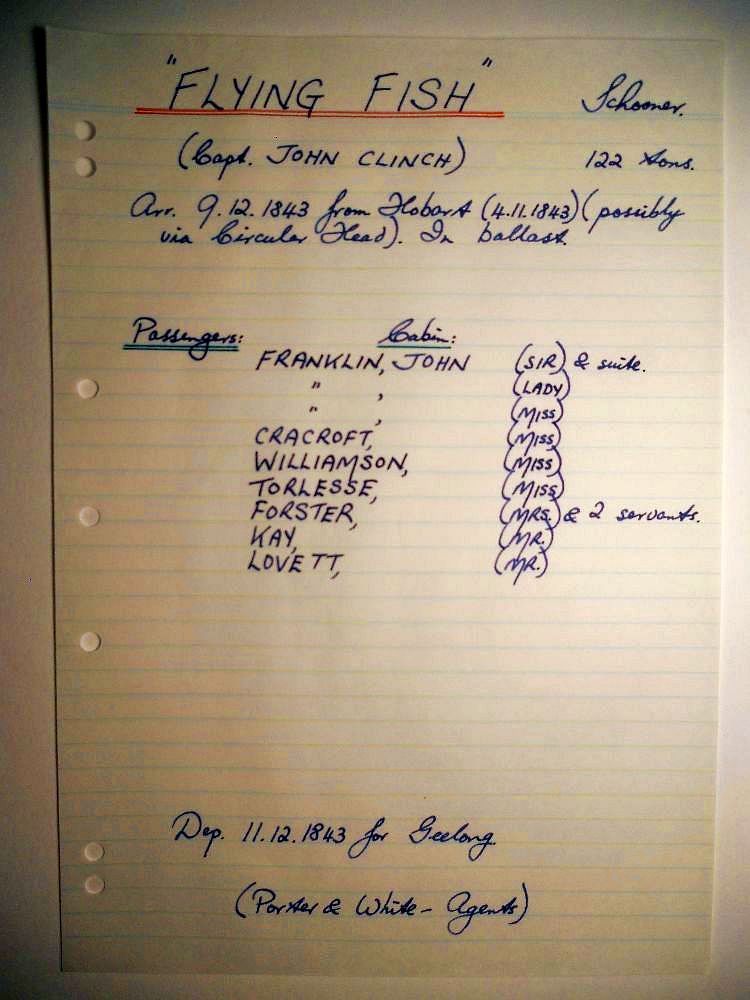 "FLYING FISH" Schooner.
(Capt. JOHN CLINCH) 122 tons.
Arr. 9.12.1843 from Hobart (4.11.1843) (possibly
via Circular Head). In ballast.
Passengers: Cabin:
FRANKLIN, JOHN (SIR) & suite.
" , (LADY)
" , (MISS)
CRACROFT, (MISS)
WILLIAMSON, (MISS)
TORLESSE, (MISS)
FORSTER, (MRS.) & 2 servants.
KAY, (MR.)
LOVETT, (MR.)
Dep. 11.12.1843 for Geelong.
(Porter & White - Agents)